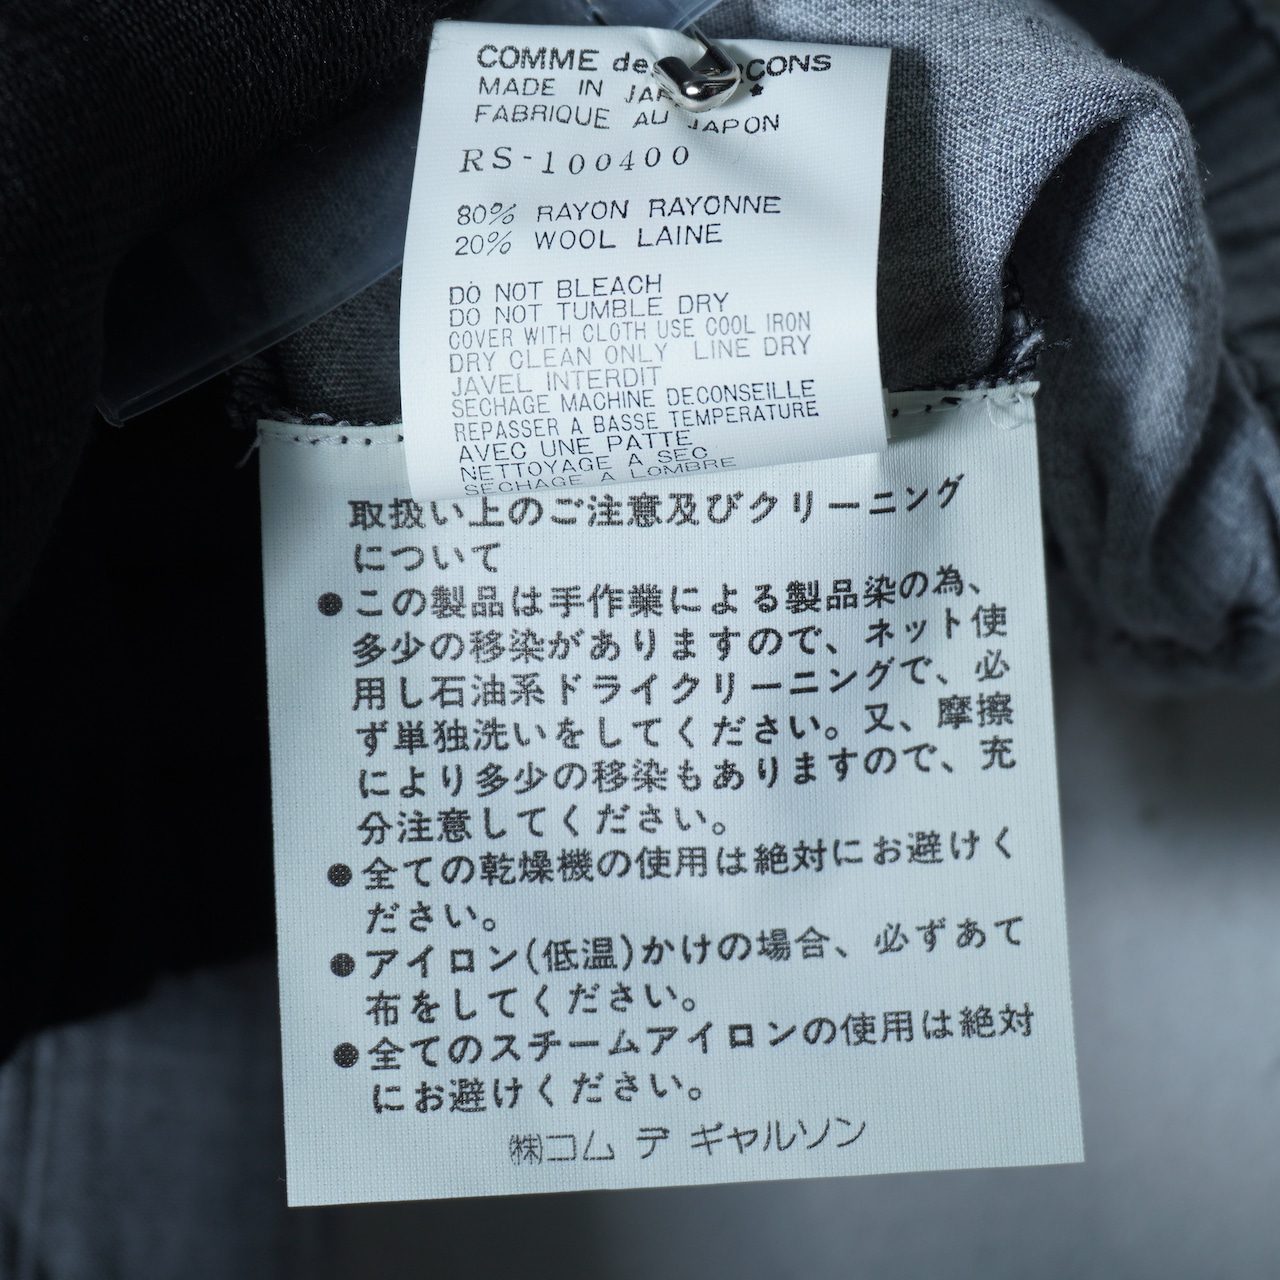 COMME des GARCONS
MADE IN JAPAN
FABRIQUE AU JAPON
RS-100400
80% RAYON RAYONNE
20% WOOL LAINE
DO NOT BLEACH
DO NOT TUMBLE DRY
COVER WITH CLOTH USE COOL IRON
DRY CLEAN ONLY LINE DRY
JAVEL INTERDIT
SECHAGE MACHINE DECONSEILLE
REPASSER A BASSE TEMPERATURE
AVEC UNE PATTE
NETTOYAGE A SEC
SECHAGE A LOMBRE
取扱い上のご注意及びクリーニング
について
●この製品は手作業による製品染の為、
多少の移染がありますので、ネット使
用し石油系ドライクリーニングで、必
ず単独洗いをしてください。又、摩擦
により多少の移染もありますので、充
分注意してください。
●全ての乾燥機の使用は絶対にお避けく
ださい。
●アイロン(低温)かけの場合、必ずあて
布をしてください。
●全てのスチームアイロンの使用は絶対
にお避けください。
㈱コム デ ギャルソン